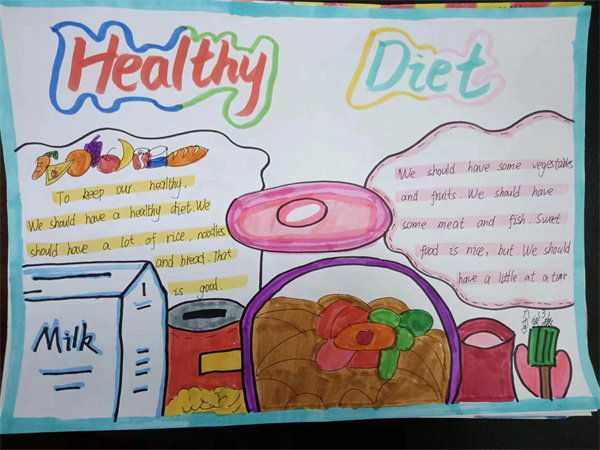 Healthy Diet
To keep our healthy,
We should have a healthy diet. We
should have a lot of rice, noodles
and bread. That
is good.
We should have some vegetables
and fruits. We should have
some meat and fish. Sweet
food is nice, but We should
have a little at a time.
Milk